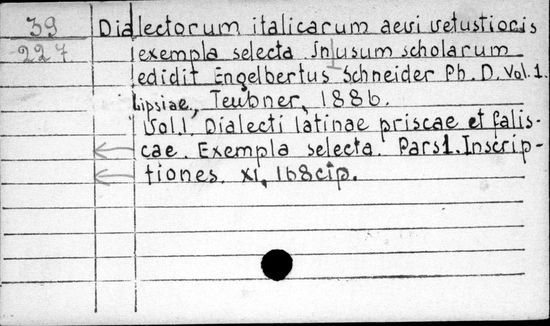 39 Dialectorum italicarum aevi vetustioris
227 exempla selecta. In usum scholarum
edidit Engelbertus Schneider Ph. D. Vol. 1.
Lipsiae, Teubner, 1886.
Vol. 1. Dialecti latinae priscae et falis-
cae. Exempla selecta. Pars 1. Inscrip-
tiones. XI, 168 cip.